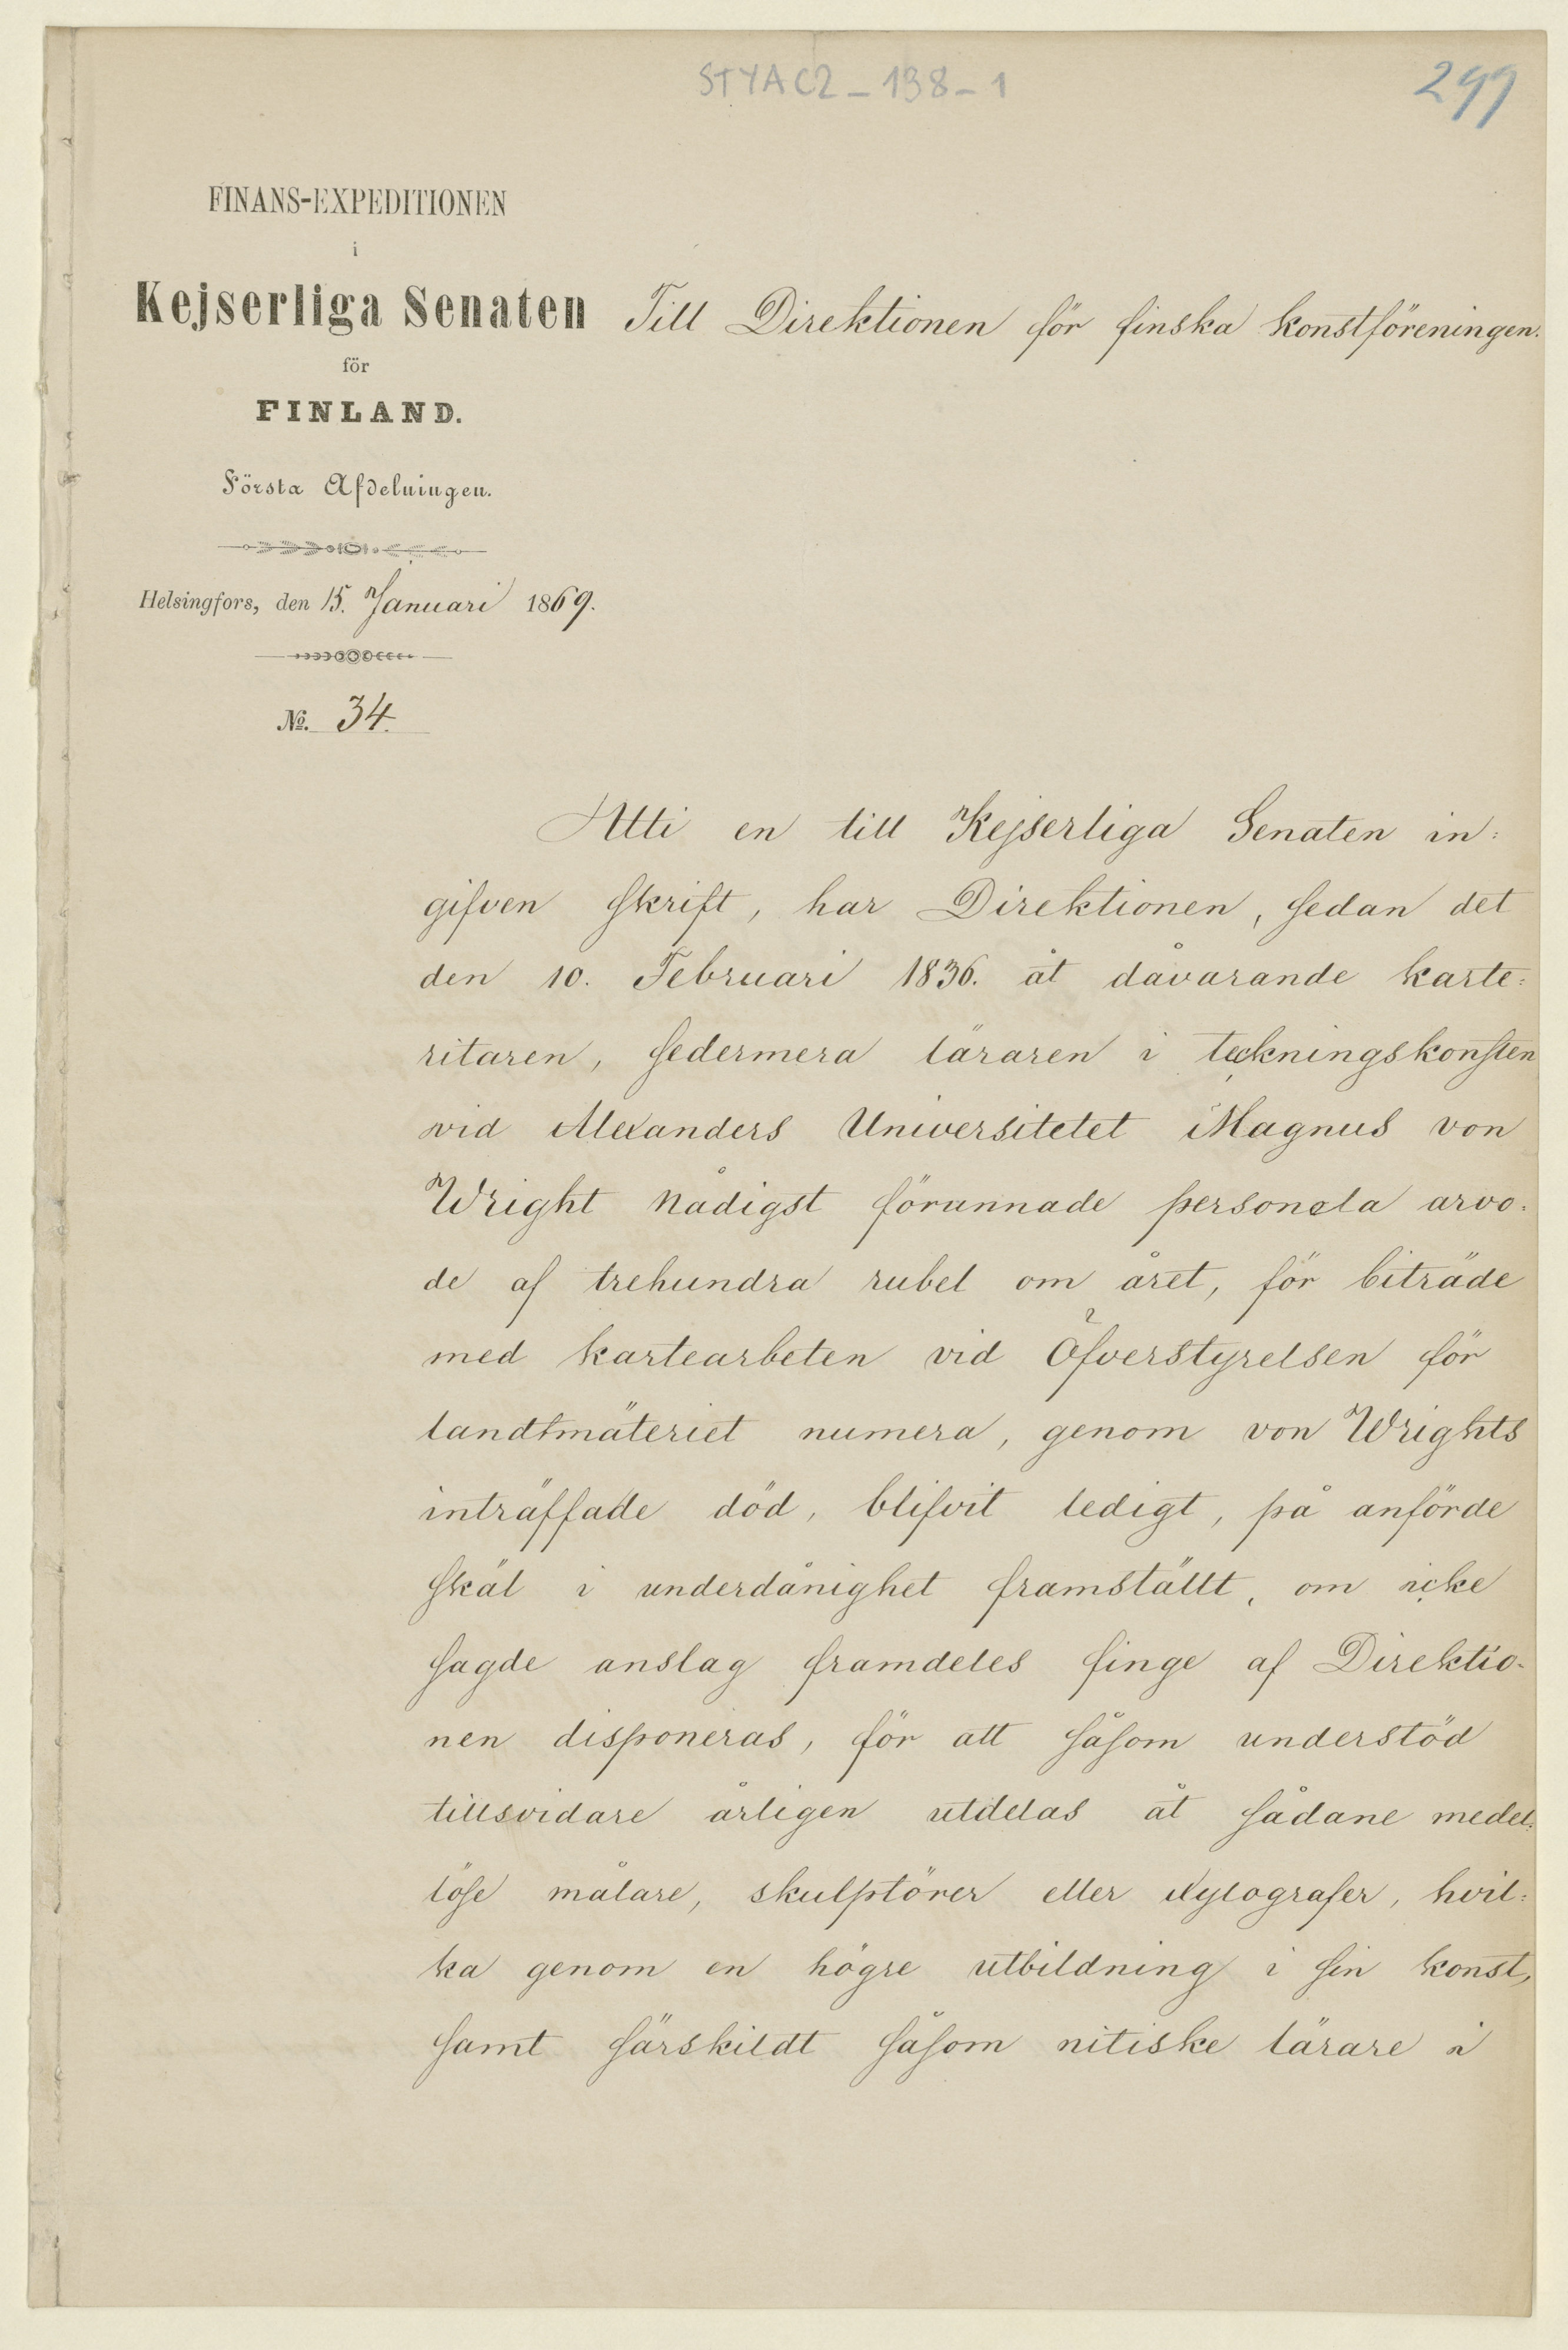 STYAC2-138-1
299
FINANS-EXPEDITIONEN
i
Kejserliga Senaten
för
FINLAND.
Första Afdelningen.
Helsingfors, den 15. Januari 1869.
No. 34.
Till Direktionen för finska konstföreningen.
Uti en till Kejserliga Senaten in:
gifven skrift, har Direktionen, sedan det
den 10. Februari 1836. åt dåvarande karte:
ritaren, sedermera läraren i teckningskonsten
vid Alexanders Universitetet Magnus von
Wright Nådigst förunnade personela arvo:
de af trehundra rubel om året, för biträde
med kartearbeten vid Öfverstyrelsen för
landtmäteriet numera, genom von Wrights
inträffade död, blifvit ledigt, på anförde
skäl i underdånighet framställt, om icke
sagde anslag framdeles finge af Direktio-
nen disponeras, för att såsom understöd
tillsvidare årligen utdelas åt sådane medel:
löse målare, skulptörer eller xylografer, hvil:
ka genom en högre utbildning i sin konst,
samt särskildt såsom nitiske lärare i